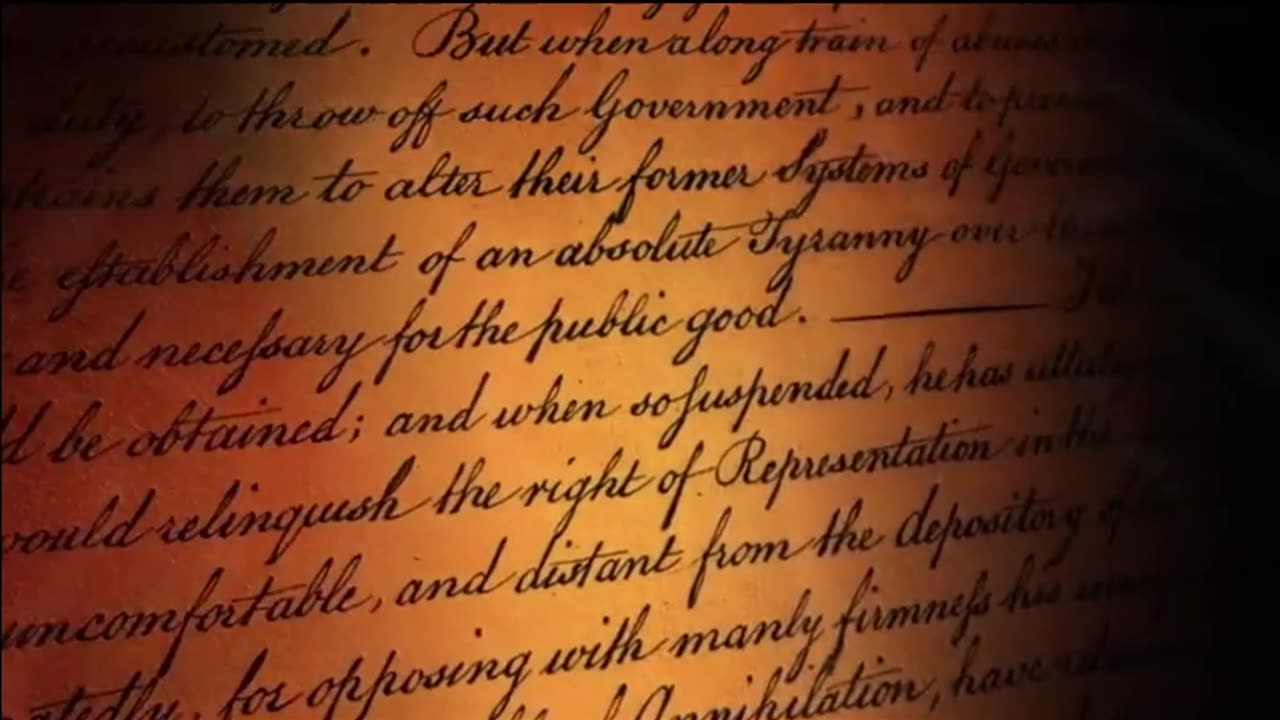 accustomed. But when a long train of abuses
duty, to throw off such Government, and to
them to alter their former Systems of
establishment of an absolute Tyranny over
and neceſsary for the public good.
be obtained; and when so ſuspended, he has
would relinquish the right of Representation in the
uncomfortable, and distant from the depository of
for opposing with manly firmneſs his
Annihilation, have